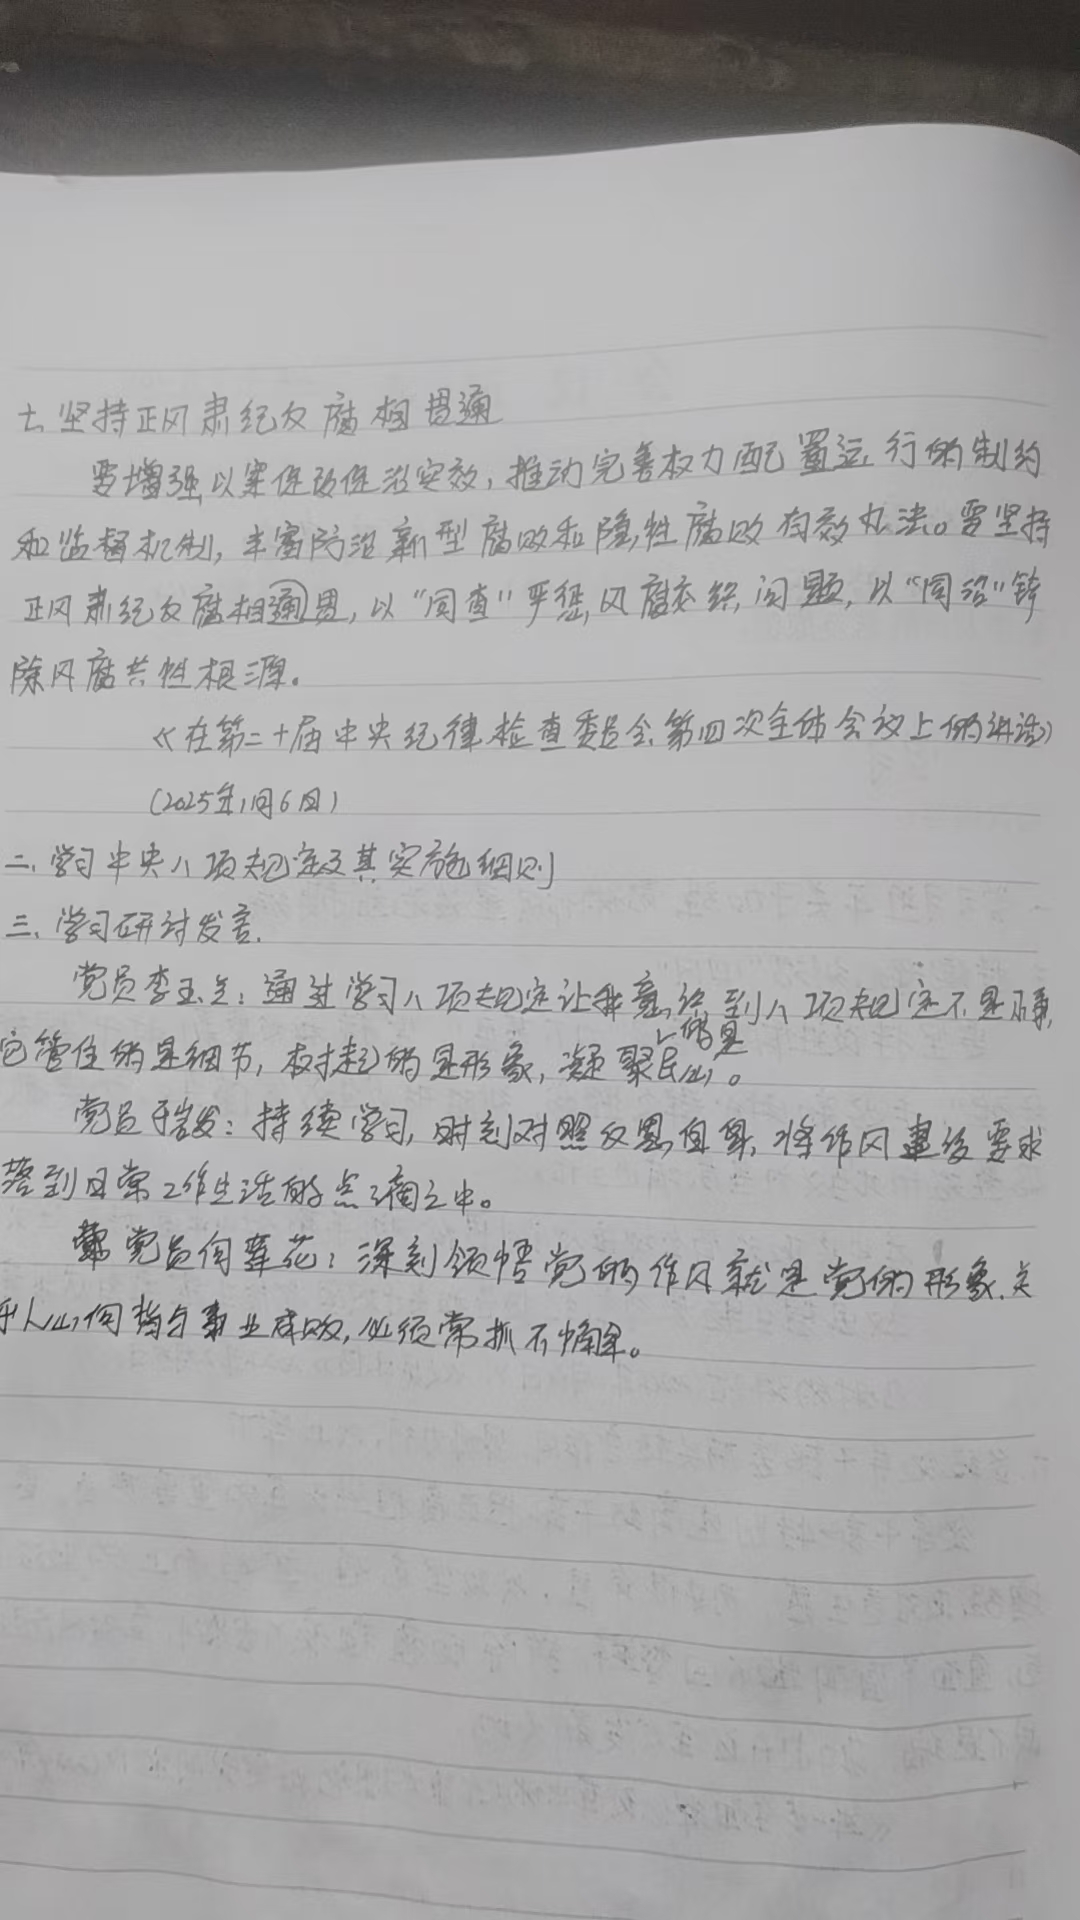 七、坚持正风肃纪反腐相贯通
要增强以案促改促治实效，推动完善权力配置运行的制约
和监督机制，丰富防治新型腐败和隐性腐败有效办法。要坚持
正风肃纪反腐相通贯，以“同查”严惩风腐交织问题，以“同治”铲
除风腐共性根源。
《在第二十届中央纪律检查委员会第四次全体会议上的讲话》
（2025年1月6日）
二、学习中央八项规定及其实施细则
三、学习研讨发言.
党员李玉兰：通过学习八项规定让我意识到八项规定不是小事，
它管住的是细节，树起的是形象，凝聚的是民心。
党员于岩发：持续学习，时刻对照反思自身，将作风建设要求
落到日常工作生活的点滴之中。
党员何莲花：深刻领悟党的作风就是党的形象，关
乎人心向背与事业成败，必须常抓不懈。